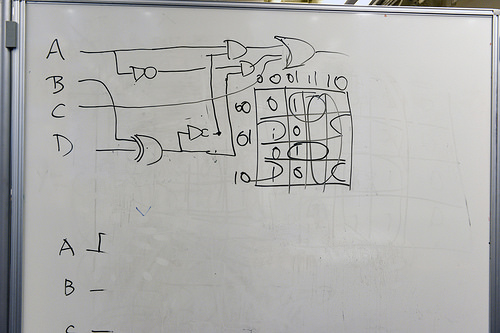 A
B
C
D
00 01 11 10
00 0 1
01 1 0
0 1
10 1 0
A
B
C